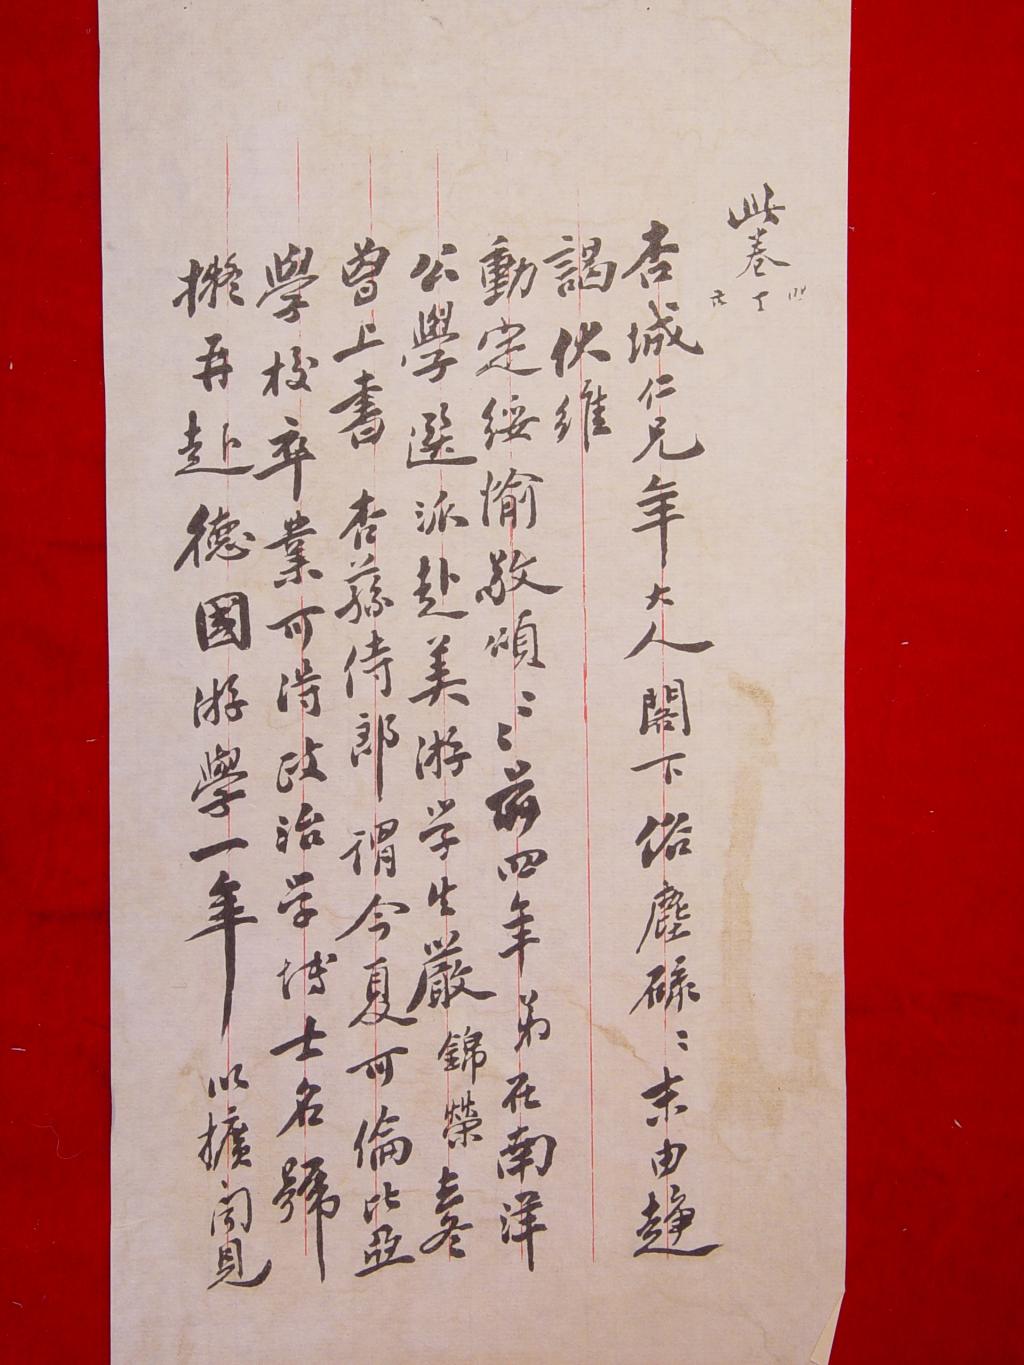 此卷
杏城仁兄年大人閣下俗塵碌〻未由趨
謁伏維
動定綏愉敬頌〻〻前四年弟在南洋
公學選派赴美游学生嚴錦榮去冬
曾上書杏蓀侍郎謂今夏可倫比亞
學校卒業可得政治学博士名號
擬再赴德國游學一年以擴聞見